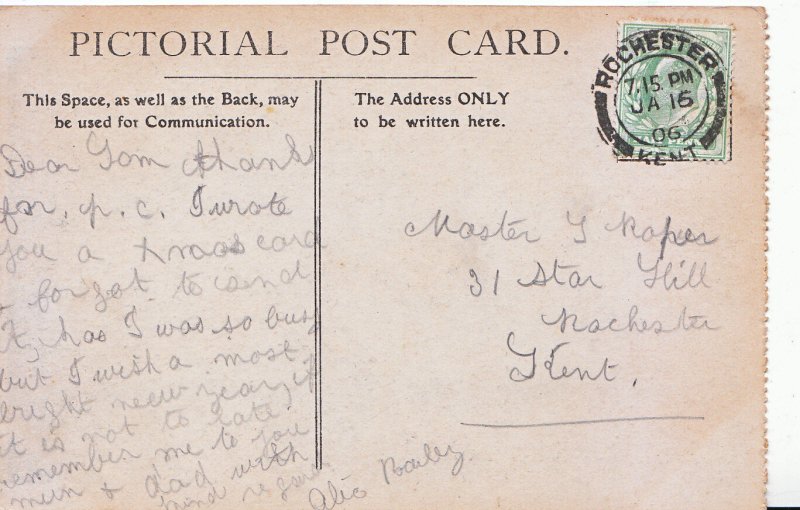 PICTORIAL POST CARD.
This Space, as well as the Back, may
be used for Communication.
The Address ONLY
to be written here.
ROCHESTER
7.15 PM
JA 16
06
KENT
Dear Tom thanks
for. p. c. I wrote
you a Xmas card
& forgot to send
it, has I was so busy
but I wish a most
bright new year, if
it is not to late,
remember me to you
mum & dad with
kind regards
Alic
Master T Roper
31 Star Hill
Rochester
Kent.